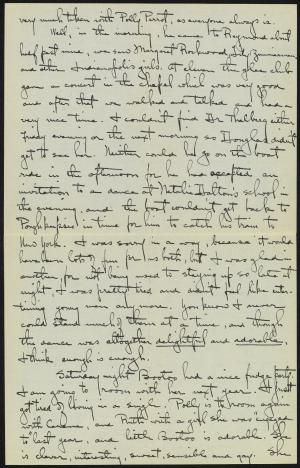 very much taken with Polly Pirrot, as everyone always is.
Well, in the morning, he came to Raymond about
half past nine, we saw Margaret Rockwood,
and other Indianapolis girls. At eleven the glee club
gave a concert in the chapel which was very good
and after that we walked and talked and had a
very nice time. I couldn't find Dr Thelberg either
Friday evening or the next morning so Douglas didn't
get to see her. Neither could he go on the boat
ride in the afternoon for he had accepted an
invitation to a dance at Natalie Dalton's school in
the evening, and the boat couldn't get back to
Poughkeepsie in time for him to catch his train to
New York. I was sorry in a way, because it would
have been lots of fun for us both, but I was glad in
another, for not being used to staying up so late at
night, I was pretty tired and didn't feel like enter-
taining young men any more. You know I never
could stand much of them at a time, and though
the dance was altogether delightful and adorable,
I think enough is enough.
Saturday night Bootoo had a nice fudge party.
I am going to room with her next year. I just
got tired of living in a single. Polly is to room again
with , and Ruth with a girl she was engaged
to last year, and little Bootoo is adorable. She
is clever, interesting, sweet, sensible and gay. She